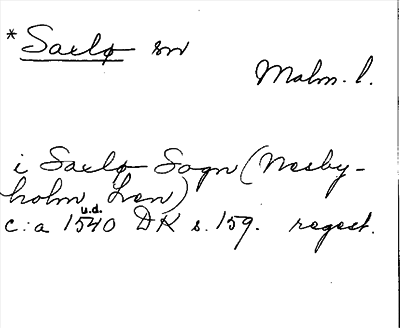 *Saelø sn
Malm. l.
i Saelø Sogn (Nesby-
holm Len)
u.d.
c:a 1540 DK s. 159. regest.